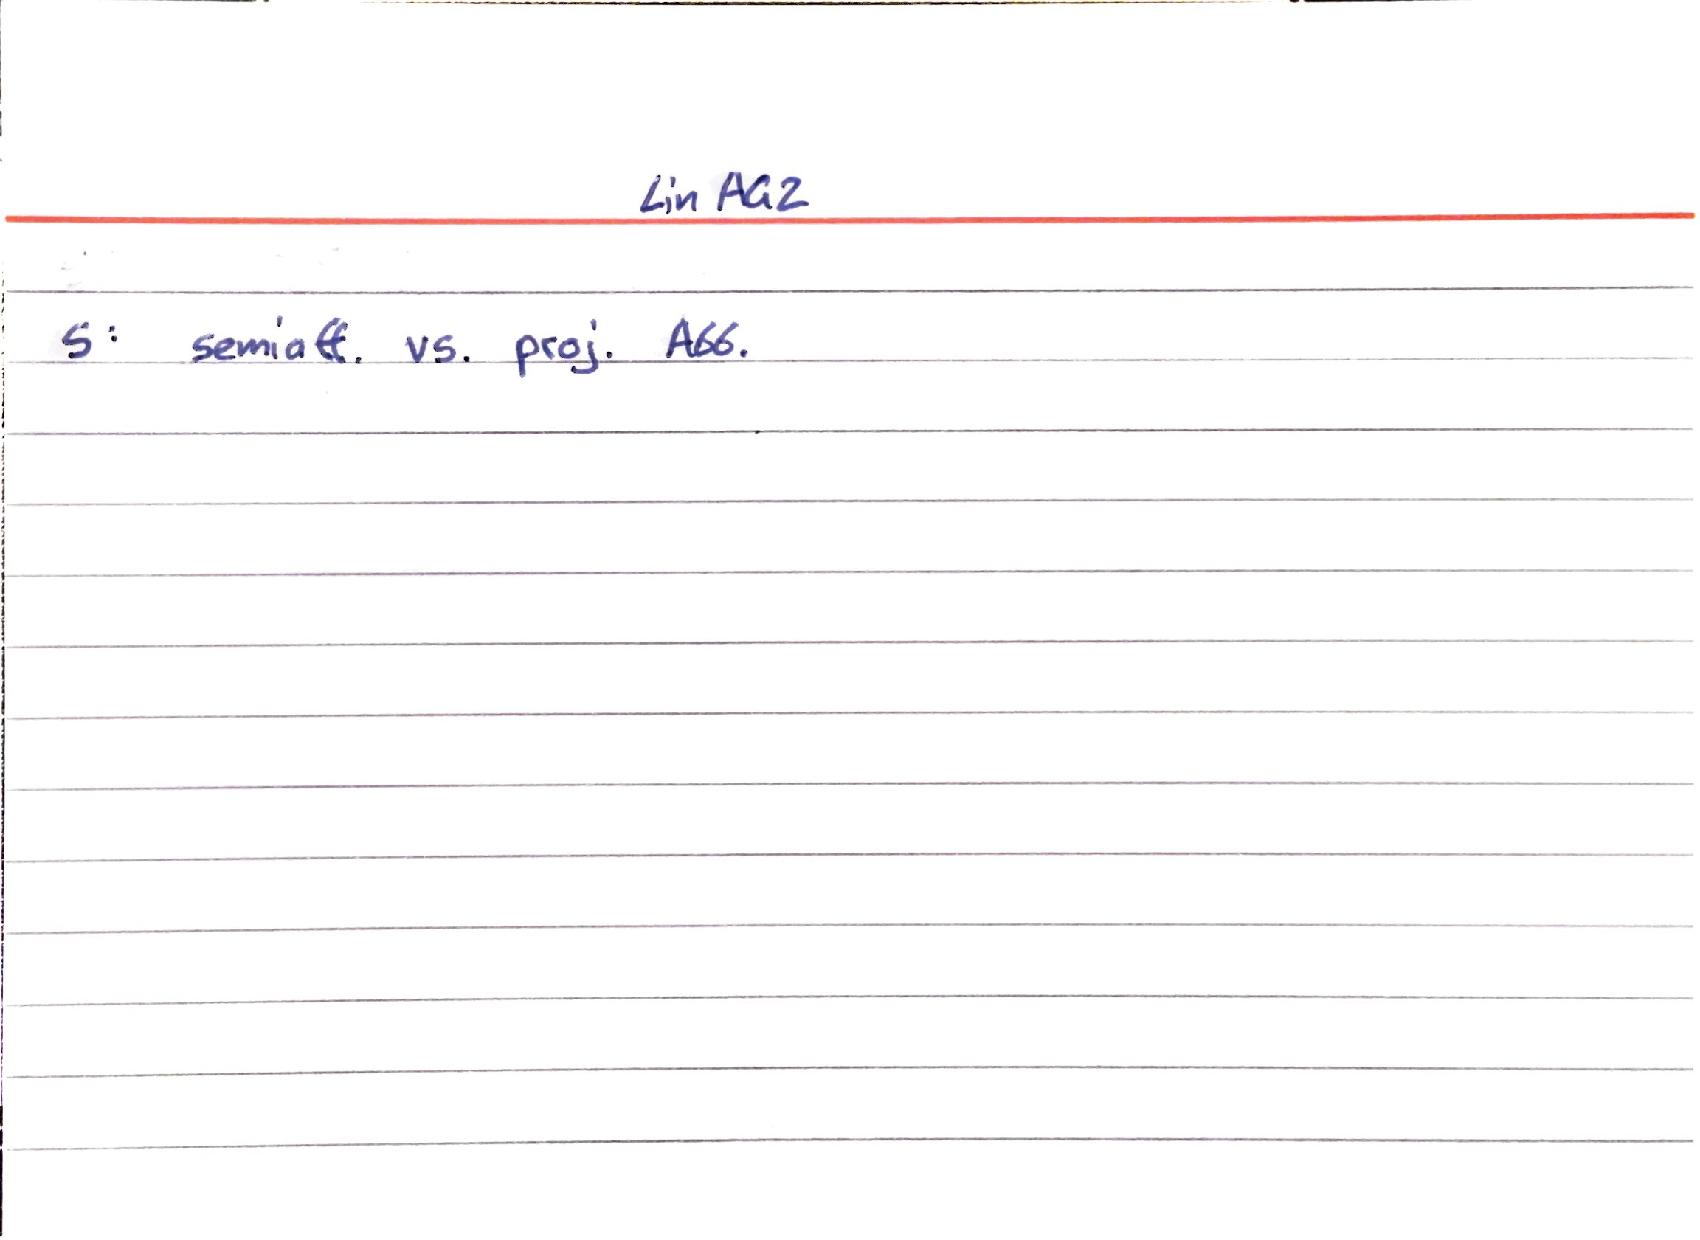 Lin AG2
S: semiaff. vs. proj. Abb.